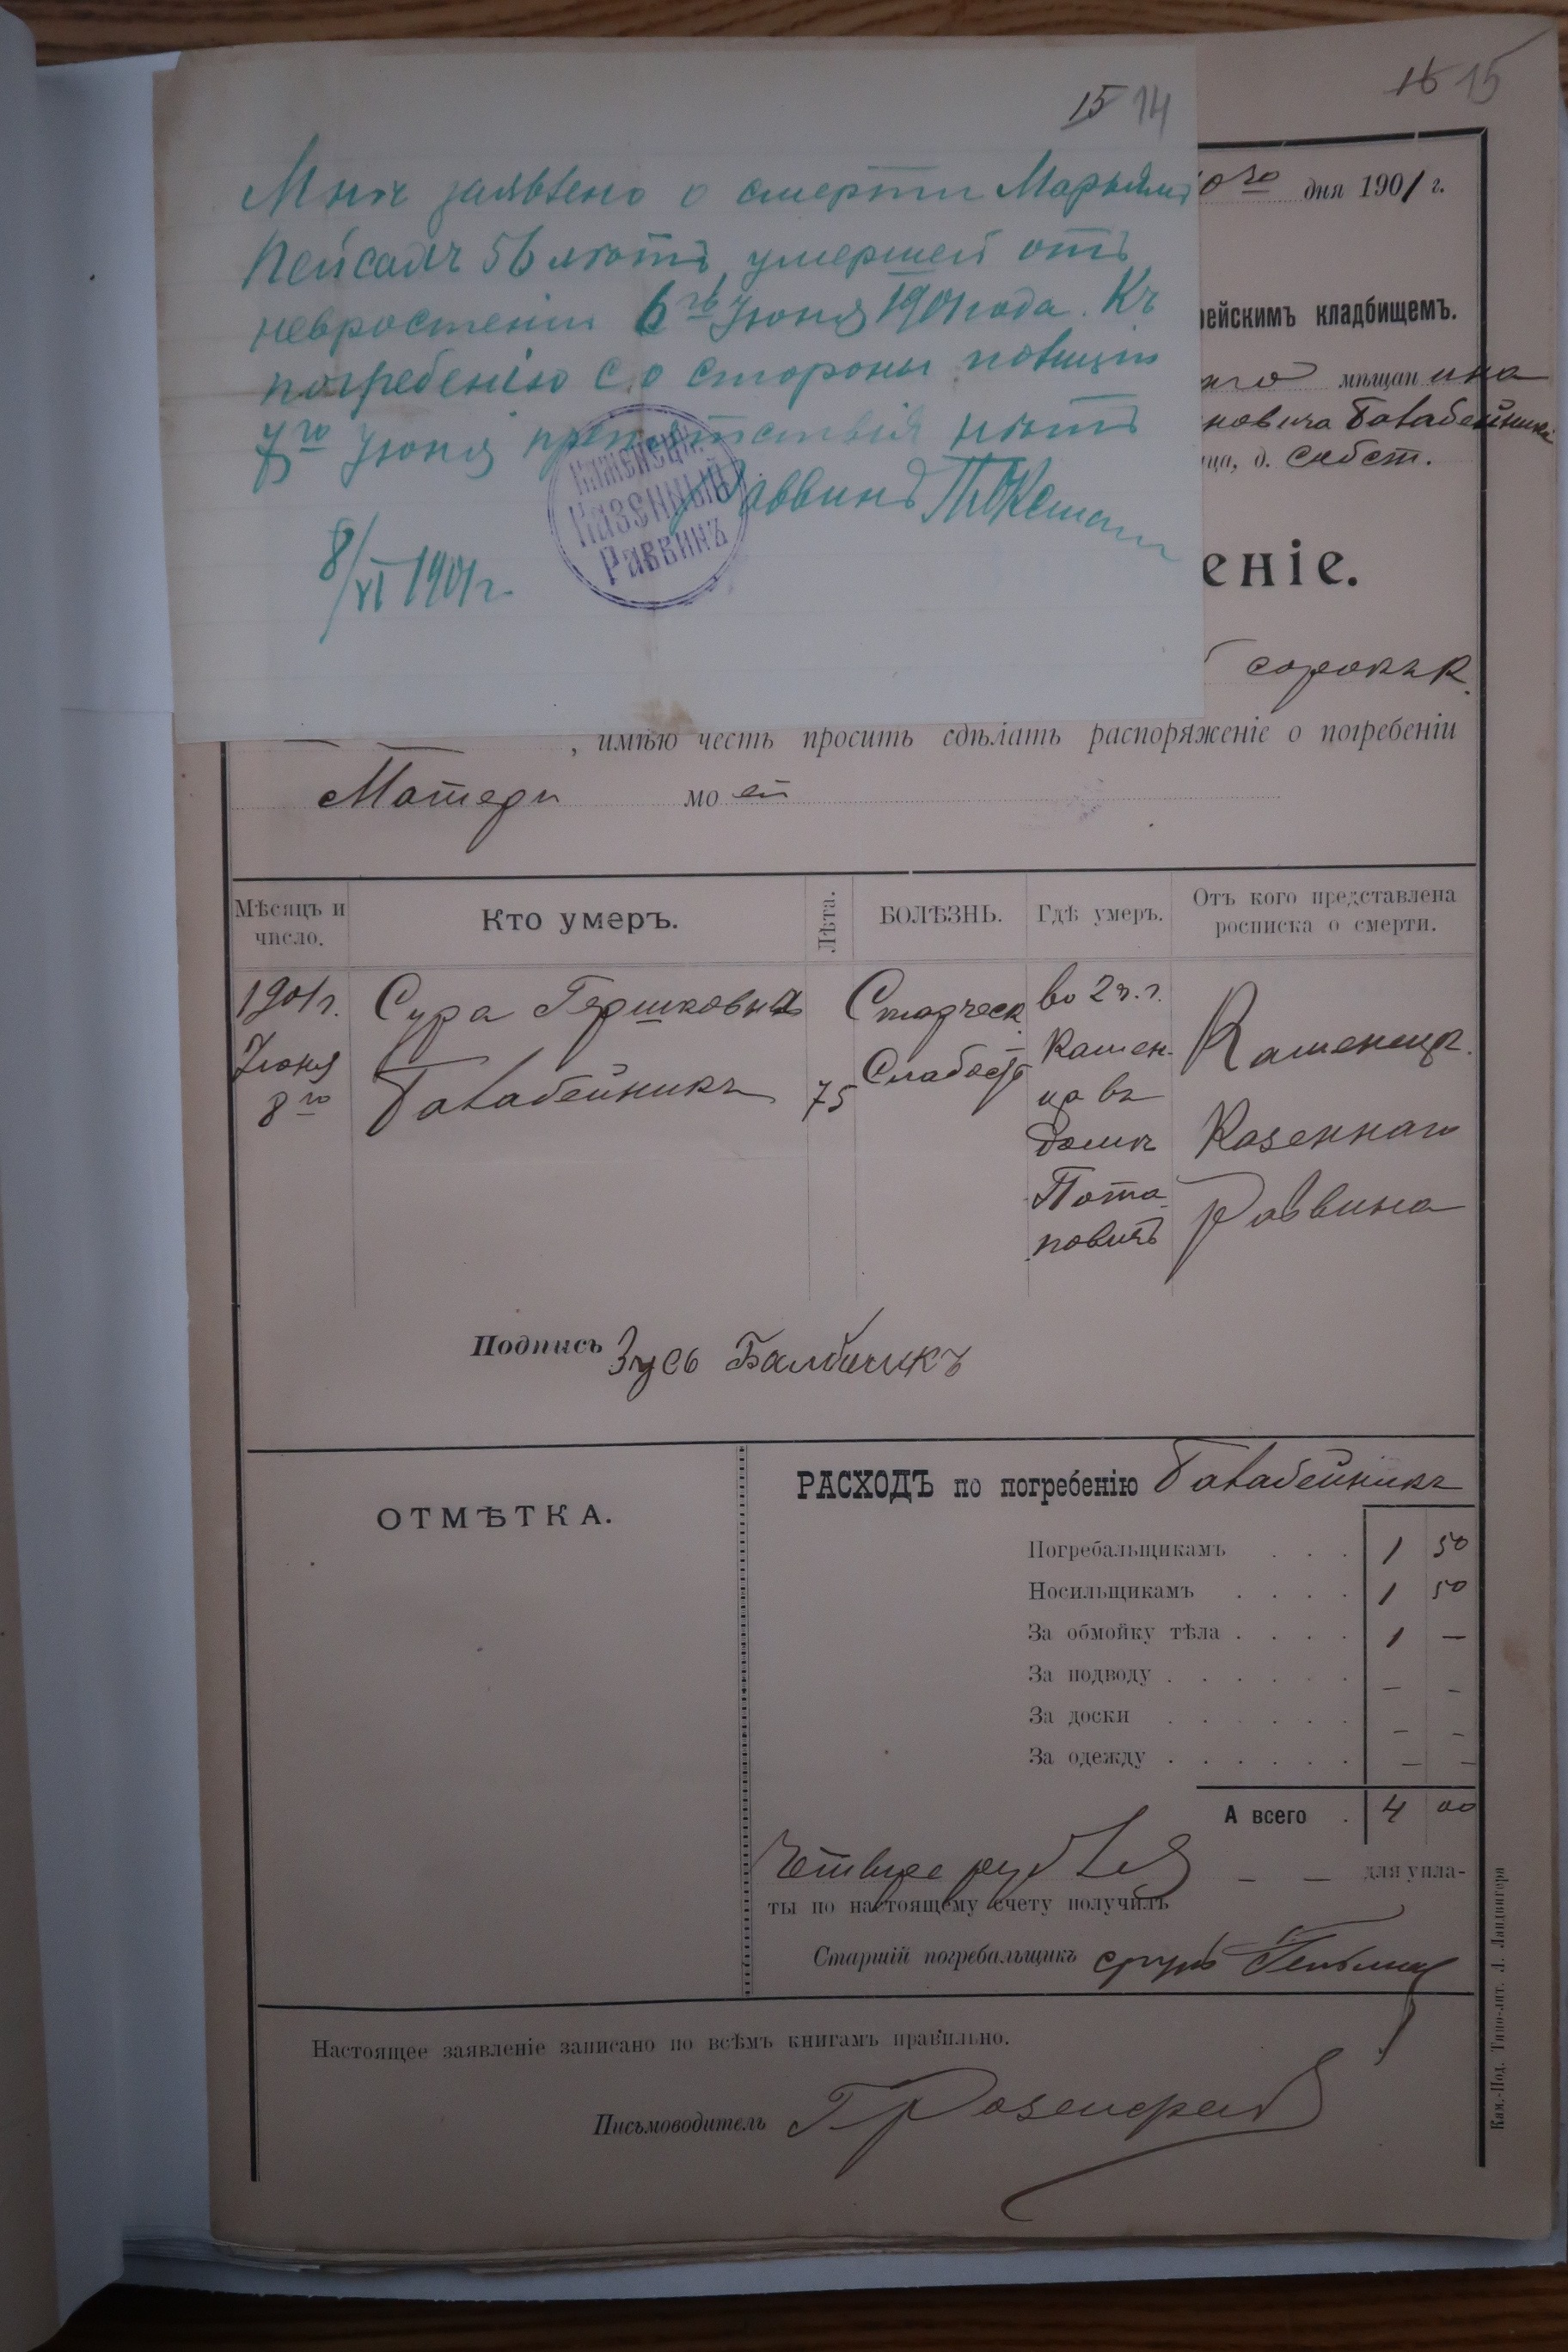 15 14
Мнѣ заявлено о смерти Марьямъ
Пейсахъ 56 лѣтъ умершей отъ
невростеніи 6го Іюня 1901 года. Къ
погребенію со стороны полиціи
7го Іюня препятствія нѣтъ
Раввинъ
8/VI 1901 г.
Каменецк.
Казенный
Раввинъ
16 15
дня 1901 г.
ейскимъ кладбищемъ.
мѣщанина
новича Балабейника
ица, д. собст.
еніе.
сорокъ к.
, имѣю честь просить сдѣлать распоряженіе о погребеніи
Матери моей
Мѣсяцъ и число.
Кто умеръ.
Лѣта.
БОЛѢЗНЬ.
Гдѣ умеръ.
Отъ кого представлена росписка о смерти.
1901 г.
Іюня
8го
Сура Гершковна
Балабейникъ
75
Старческ.
Слабость
во 2 ч. г.
Камен-
ца въ
домѣ
Пота-
повичъ
Каменецк.
Казеннаго
Раввина
Подпись Зусь
ОТМѢТКА.
РАСХОДЪ по погребенію Балабейникъ
Погребальщикамъ . . . 1 50
Носильщикамъ . . . . 1 50
За обмойку тѣла . . . . 1 —
За подводу . . . . . . — —
За доски . . . . . . — —
За одежду . . . . . . — —
А всего . 4 00
Четыре рубля — — для упла-
ты по настоящему счету получилъ
Старшій погребальщикъ
Настоящее заявленіе записано по всѣмъ книгамъ правильно.
Письмоводитель
Кам.-Под. Типо-лит. Л. Ландвигера